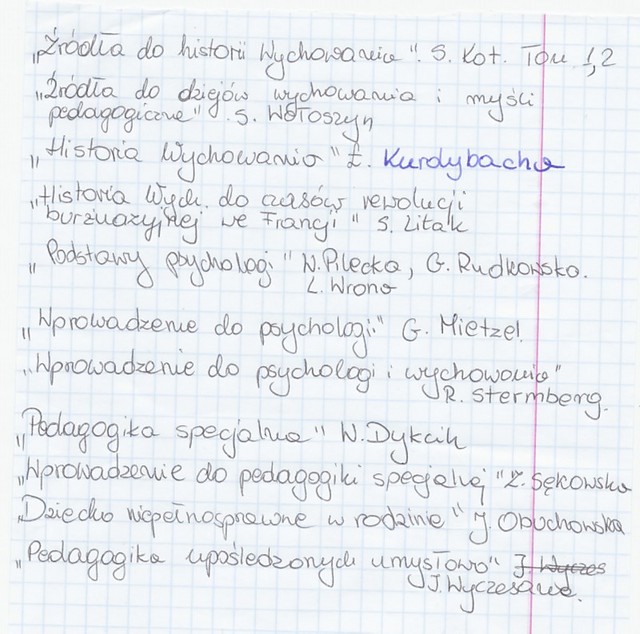 „Źródła do historii Wychowania". S. Kot. Tom 1,2
„Źródła do dziejów wychowania i myśli
pedagogicznej" S. Wołoszyn
„Historia Wychowania" Ł. Kurdybacha
„Historia Wych. do czasów rewolucji
burżuazyjnej we Francji" S. Litak
„Podstawy psychologi" W. Pilecka, G. Rudkowska.
L. Wrona
„Wprowadzenie do psychologii" G. Mietzel
„Wprowadzenie do psychologi i wychowania"
R. Stermberg.
„Pedagogika specjalna" W. Dykcik
„Wprowadzenie do pedagogiki specjalnej" Z. Sękowska
„Dziecko niepełnosprawne w rodzinie" J. Obuchowska
„Pedagogika upośledzonych umysłowo" J. Wyczes
J. Wyczesawe.